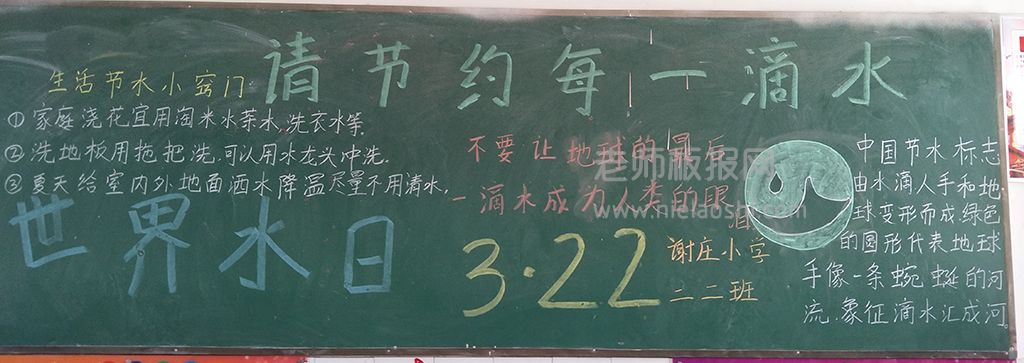 请节约每一滴水
生活节水小窍门:
①家庭浇花宜用淘米水茶水,洗衣水等.
②洗地板用拖把洗.可以用水龙头冲洗.
③夏天给室内外地面洒水降温尽量不用清水,
世界水日
不要让地球的最后
一滴水成为人类的眼
泪
3.22
谢庄小学
二二班
中国节水标志
由水滴人手和地
球变形而成.绿色
的圆形代表地球
手像一条蜿蜒的河
流.象征滴水汇成河.
老师板报网